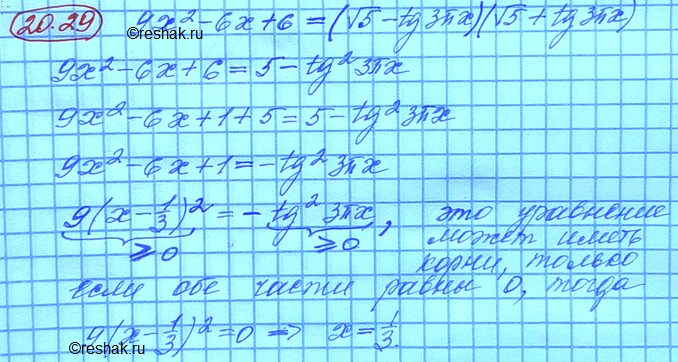 20.29 9x² - 6x + 6 = (√5 - tg 3πx)(√5 + tg 3πx)
©reshak.ru
9x² - 6x + 6 = 5 - tg² 3πx
9x² - 6x + 1 + 5 = 5 - tg² 3πx
9x² - 6x + 1 = - tg² 3πx
9(x - 1/3)² = - tg² 3πx, это уравнение
⩾0 ⩾0 может иметь
корни, только
если обе части равны 0, тогда
9(x - 1/3)² = 0 => x = 1/3.
©reshak.ru